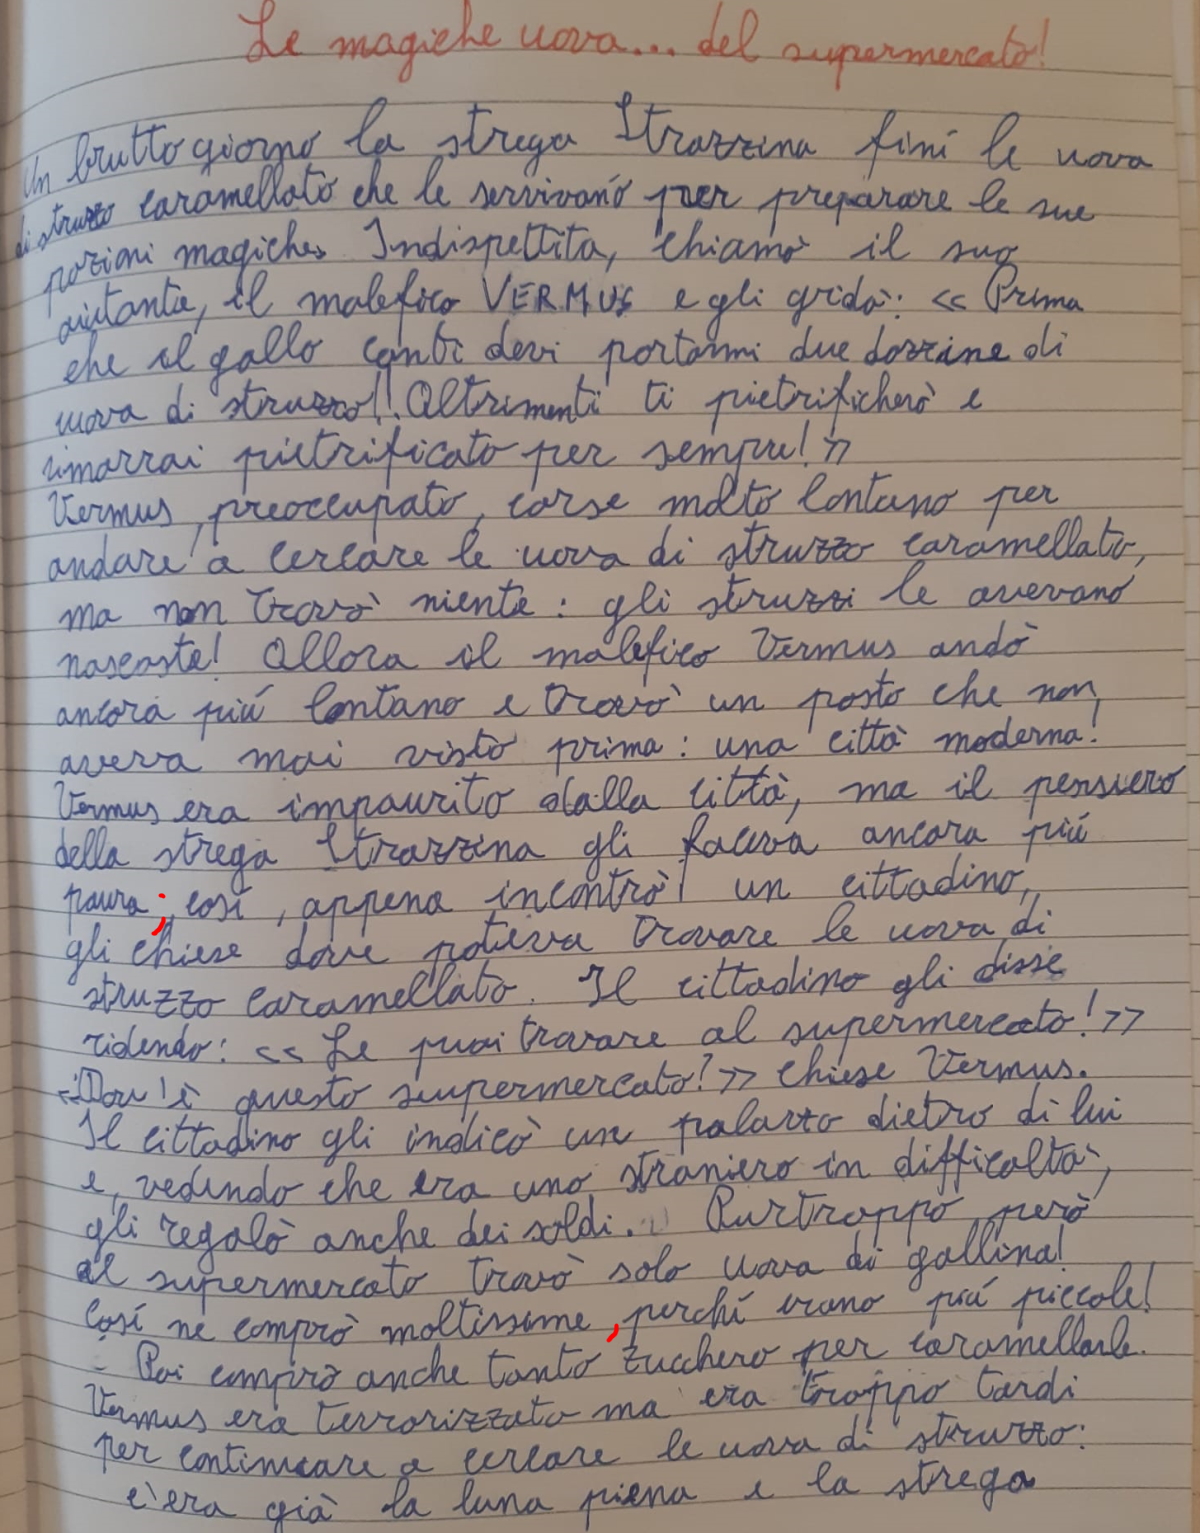 Le magiche uova... del supermercato!
Un brutto giorno la strega Strazzina finí le uova
di struzzo caramellato che le servivano per preparare le sue
pozioni magiche. Indispettita, chiamò il suo
aiutante, il malefico VERMUS e gli gridò: << Prima
che il gallo canti devi portarmi due dozzine di
uova di struzzo!! Altrimenti ti pietrificherò e
rimarrai pietrificato per sempre! >>
Vermus, preoccupato, corse molto lontano per
andare a cercare le uova di struzzo caramellato,
ma non trovò niente: gli struzzi le avevano
nascoste! Allora il malefico Vermus andò
ancora piú lontano e trovò un posto che non
aveva mai visto prima: una città moderna!
Vermus era impaurito dalla città, ma il pensiero
della strega Strazzina gli faceva ancora piú
paura; cosí, appena incontrò un cittadino,
gli chiese dove poteva trovare le uova di
struzzo caramellato. Il cittadino gli disse
ridendo: << Le puoi trovare al supermercato! >>
<< Dov'è questo supermercato? >> chiese Vermus.
Il cittadino gli indicò un palazzo dietro di lui
e, vedendo che era uno straniero in difficoltà,
gli regalò anche dei soldi. Purtroppo però
al supermercato trovò solo uova di gallina!
Cosí ne comprò moltissime, perché erano piú piccole!
Poi comprò anche tanto zucchero per caramellarle.
Vermus era terrorizzato ma era troppo tardi
per continuare a cercare le uova di struzzo:
c'era già la luna piena e la strega